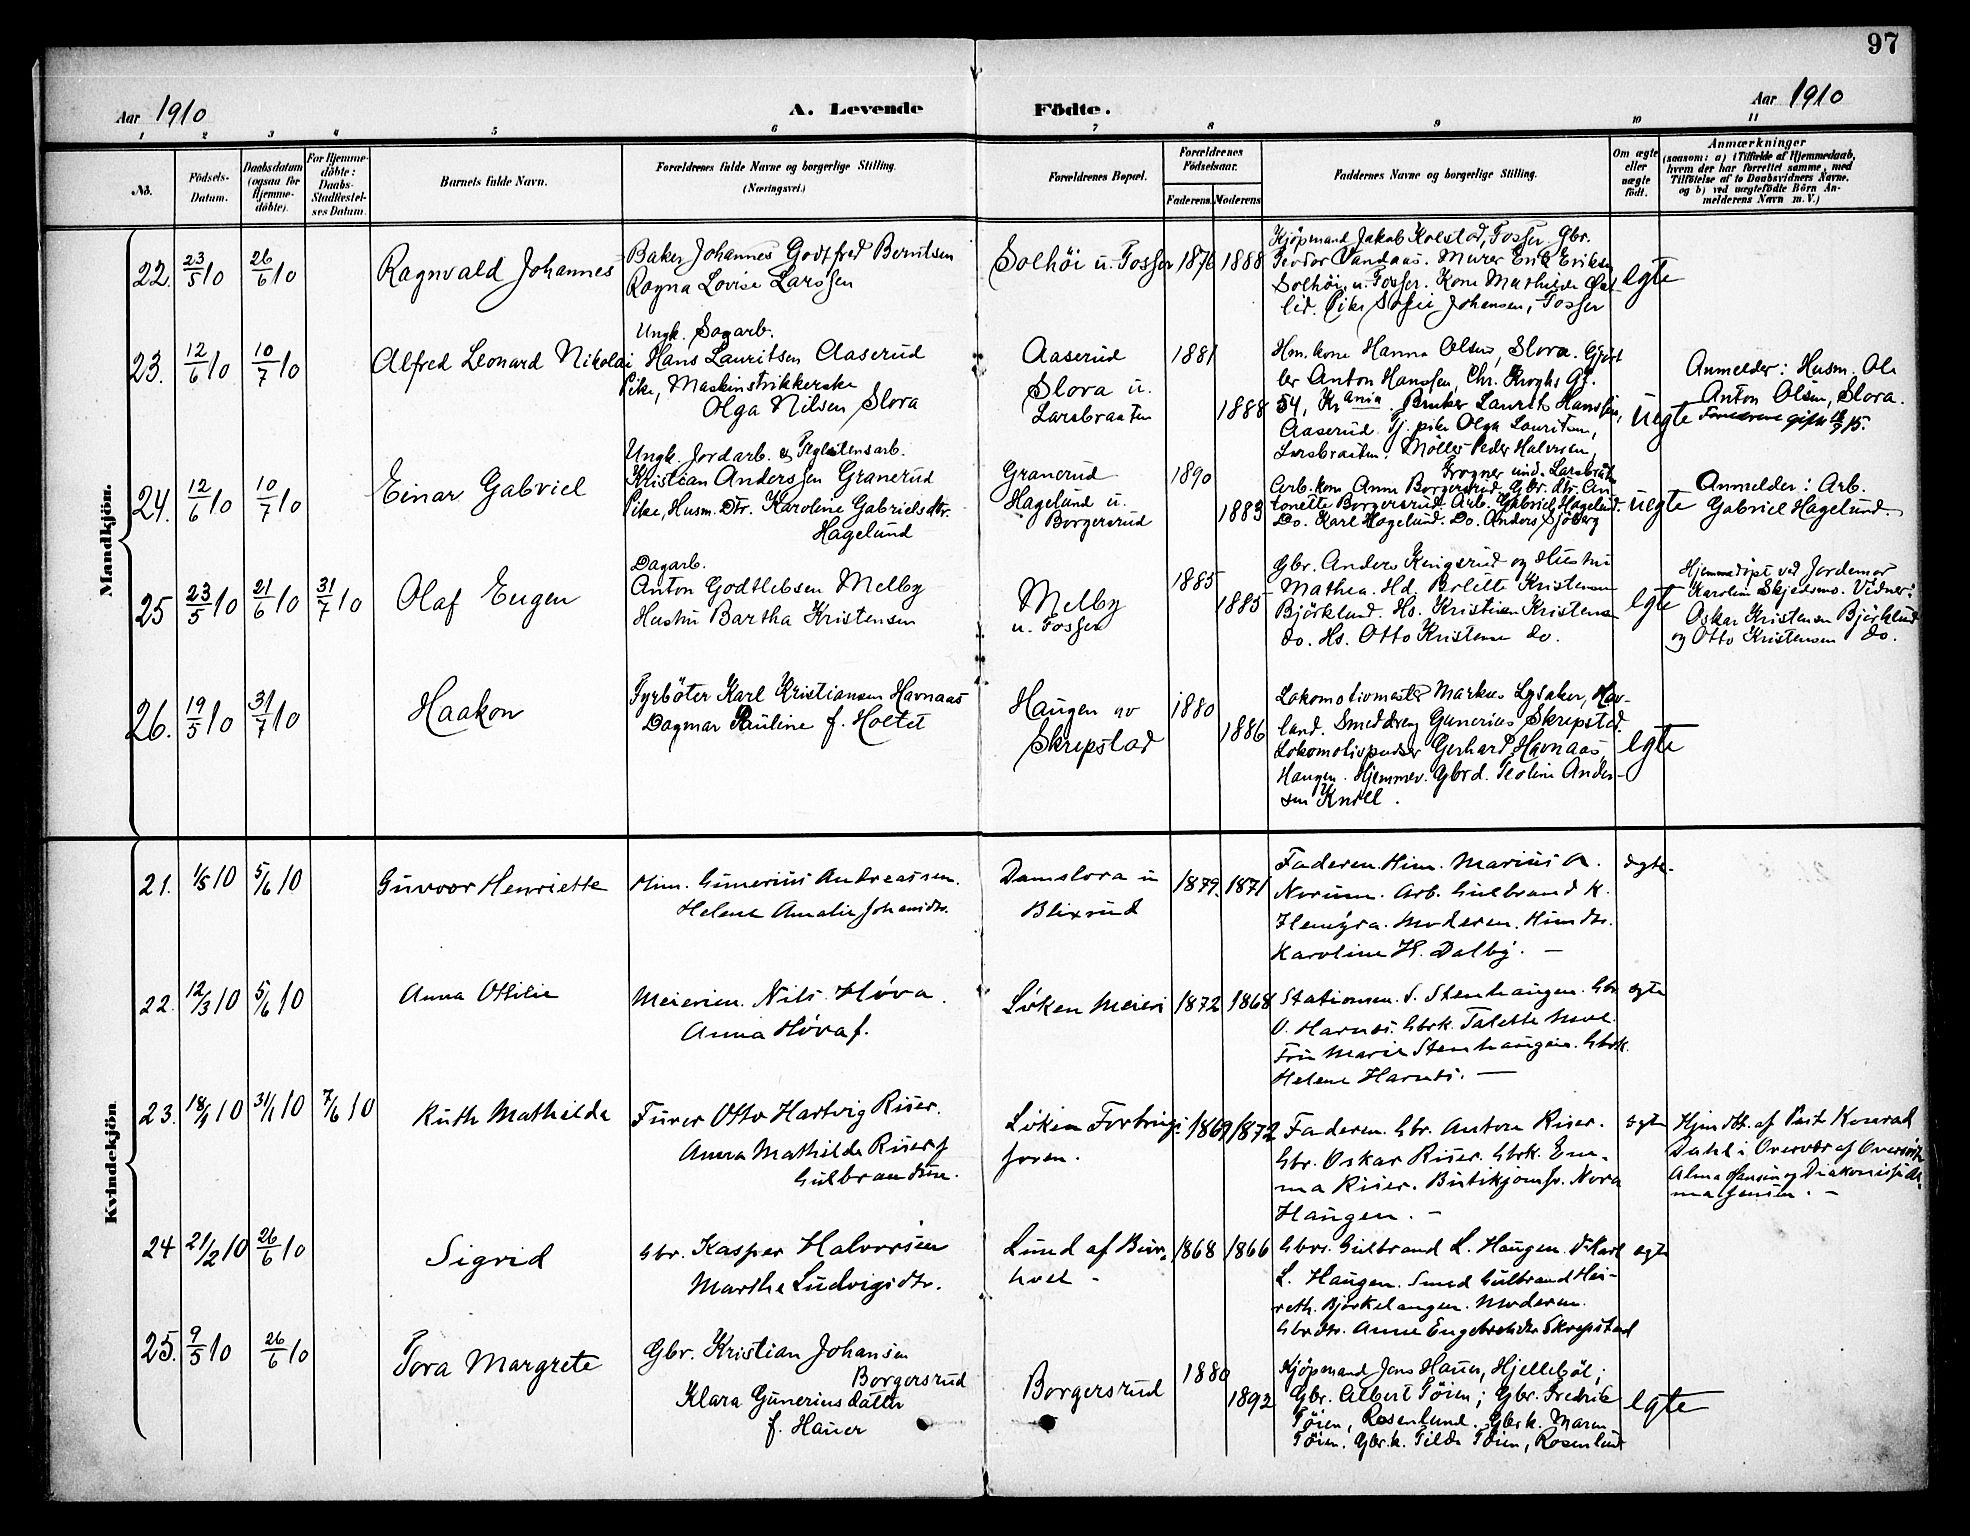 97
Aar 1910
A. Levende
Födte.
Aar 1910
1 2 3 4 5 6 7 8 9 10 11
No.
Födsels-
Datum.
Daabsdatum
(ogsaa for
Hjemme-
döbte).
For Hjemme-
döbte:
Daabs-
Stadfæstel-
ses Datum.
Barnets fulde Navn.
Forældrenes fulde Navne og borgerlige Stilling.
(Næringsvei.)
Forældrenes Bopæl.
Forældrenes
Födselsaar.
Faderens. Moderens.
Faddernes Navne og borgerlige Stilling.
Om ægte
eller
uægte
födt.
Anmærkninger
(saasom: a) i Tilfælde af Hjemmedaab,
hvem der har forrettet samme, med
Tilföielse af to Daabsvidners Navne.
og b) ved uægtefödte Börn An-
melderens Navn m. V.)
Mandkjön.
22. 23/5 10 26/6 10
Ragnvald Johannes
Baker Johannes Godtfred Berntsen
Ragna Lovise Larssen
Solhöi u. Fosser
1876 1888
Kjöpmand Jakob Kolstad, Fosser Gbr.
Teodor Vandaas. Murer Erik Eriksen
Solhöi, u. Fosser. Kone Mathilde
lid. Pike Sofie Johansen, Fosser
egte
23. 12/6 10 10/7 10
Alfred Leonard Nikolai
Ungk. Sagarb.
Hans Lauritsen Aaserud
Pike, Maskinstrikkerske
Olga Nilsen Slora
Aaserud
Slora u.
Larsbraaten
1881
1888
Hm. kone Hanna Olsen, Slora.
ler Anton Hanssen, Chr. Kroghs Gt.
54, Kr.ania. Bruker Laurits Hanssen,
Aaserud. Tj. pike Olga Lauritsen,
Larsbraaten. Möller Peder Halvorsen,
Frogner und. Larsbråten
uegte
Anmelder: Husm. Ole
Anton Olsen, Slora.
Foreldrene gift
24. 12/6 10 10/7 10
Einar Gabriel
Ungk. Jordarb. & Teglstensarb.
Kristian Anderssen Granerud
Pike, Husm. Dtr. Karoline Gabrielsdtr.
Hagelund
Granerud
Hagelund u.
Borgersrud
1890
1883
Arb. kone Anne Borgersrud. Gbr. dtr. An-
tonette Borgersrud. Arb. Gabriel Hagelund.
Do. Karl Hagelund. Do. Anders Sjöberg
uegte
Anmelder: Arb.
Gabriel Hagelund.
25 23/5 10 21/6 10 31/7 10
Olaf Eugen
Dagarb.
Anton Godtlebsen Melby
Hustru Bartha Kristensen
Melby
u. Fosser
1885
1885
Gbr. Anders Kingsrud og Hustru
Mathea. Hd. Bolette Kristensen
Björklund. Hs. Kristian Kristensen
do. Hs. Otto Kristensen do.
egte
Hjemmedöpt ved Jordemor
Karoline Skjedsmo. Vidner:
Oskar Kristensen Björklund
og Otto Kristensen do.
26. 19/5 10 31/7 10
Haakon
Fyrböter Karl Kristiansen Havnaas
Dagmar Pauline f. Holtet
Haugen av
Skrepstad
1880
1886
Lokomotivmester Markus Lysaker, Hav-
land. Smeddreng Gunerius Skrepstad.
Lokomotivpudser Gerhard Havnaas
Haugen. Hjemmev. Gbrd. Teoline Ander-
sen Knoll.
egte
Kvindekjön
21. 1/5 10 5/6 10
Guvoor Henriette
Hm. Gunerius Andreassen.
Helene Amalie Johansdtr.
Damslora u
Blixrud
1879. 1871
Faderen. Hm. Marius A.
Norum. Arb. Gulbrand K.
Hemyra. Moderen. Husmdtr.
Karoline H. Dalby. —
ægte.
22. 12/3 10 5/6 10
Anna Otilie
Meierim. Nils Höva.
Anna Höva f.
Löken Meieri
1872 1868
Stationsm. S. Stenhaugen. Gbr
O. Harnes. Gbrk. Talette Moe.
Fru Marie Stenhaugen. Gbrk.
Helene Harnes. —
egte
23. 18/1 10 31/1 10 7/6 10
Ruth Mathilde
Furer Otto Hartvig Riser.
Anna Mathilde Riser f
Gulbrandsen.
Löken Forbrugs-
foren.
1869 1872
Faderen. Gbr. Anton Riser.
Gbr. Oskar Riser. Gbrk. Em-
ma Riser. Butikjomfr. Nora
Haugen. —
egte
Hjmdbt. af Pest. Konrad
Dahl i Overvær af Oversöster
Alma Hansen og Diakonisse Al-
ma Jensen. —
24 21/2 10 26/6 10
Sigrid
Gbr. Kasper Halvorsen
Marthe Ludvigsdtr.
Lund af Bur-
hol -
1868 1866
Gbrs. Gulbrand L. Haugen. do Karl
L. Haugen. Smed Gulbrand Hei-
reth. Björkelangen. Moderen.
Gbrdtr. Anne Engebretsdtr Skrepstad
egte
25. 9/5 10 26/6 10
Tora Margrete
Gbr. Kristian Johansen
Borgersrud
Klara Gunerius datter
f. Hauer
Borgersrud
1880
1892
Kjöpmand Jens Hauer, Hjelleböl;
Gbr. Albert Töien; Gbr. Fredrik
Töien, Rosenlund. Gbrk. Maren
Töien. Gbr.k. Tilda Töien, Rosenlund
egte